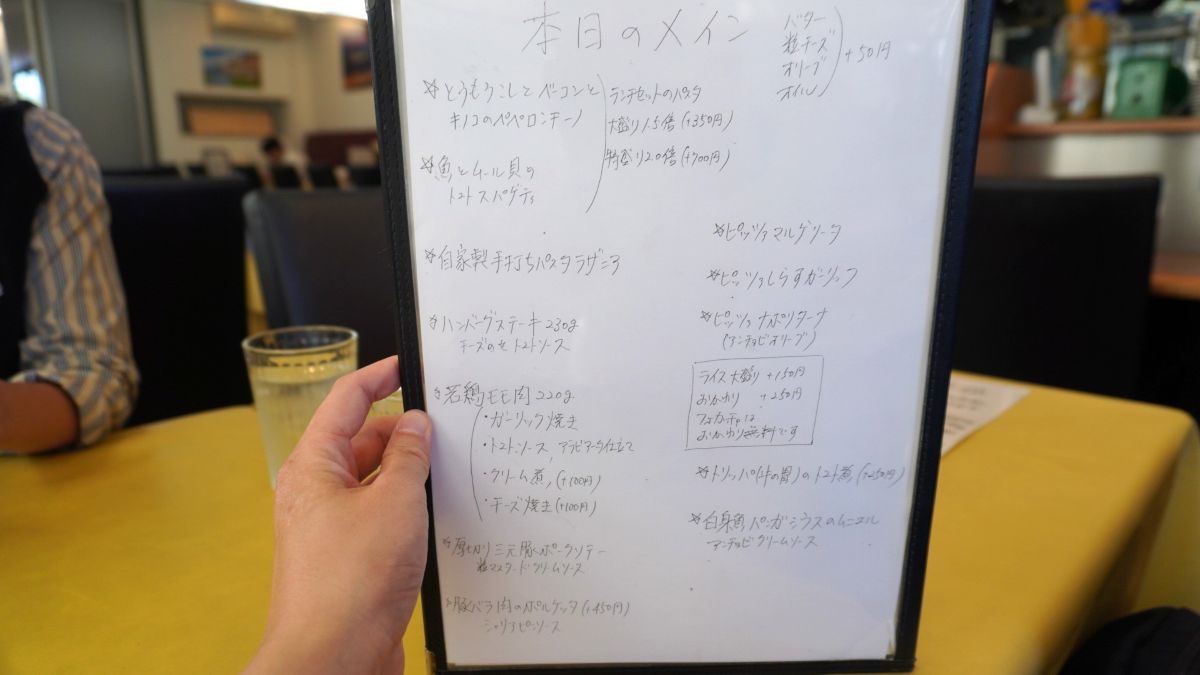 本日のメイン
バター
粒チーズ
オリーブ
オイル
+50円
☆とうもろこしとベーコンと
キノコのペペロンチーノ
☆魚とムール貝の
トマトスパゲティ
ランチセットのパスタ
大盛り1.5倍(+350円)
特盛り2.0倍(+700円)
☆自家製手打ちパスタラザニア
☆ハンバーグステーキ230g
チーズのせトマトソース
☆若鶏モモ肉220g
・ガーリック焼き
・トマトソース、アラビアータ仕立て
・クリーム煮(+100円)
・チーズ焼き(+100円)
☆厚切り三元豚ポークソテー
粒マスタードクリームソース
☆豚バラ肉のポルケッタ(+450円)
シャリアピンソース
☆ピッツァマルゲリータ
☆ピッツァしらすガーリック
☆ピッツァナポリターナ
(アンチョビオリーブ)
ライス大盛り +150円
おかわり +250円
フォカッチャは
おかわり無料です
☆トリッパ(牛の胃)のトマト煮(+250円)
☆白身魚パンガシウスのムニエル
アンチョビクリームソース